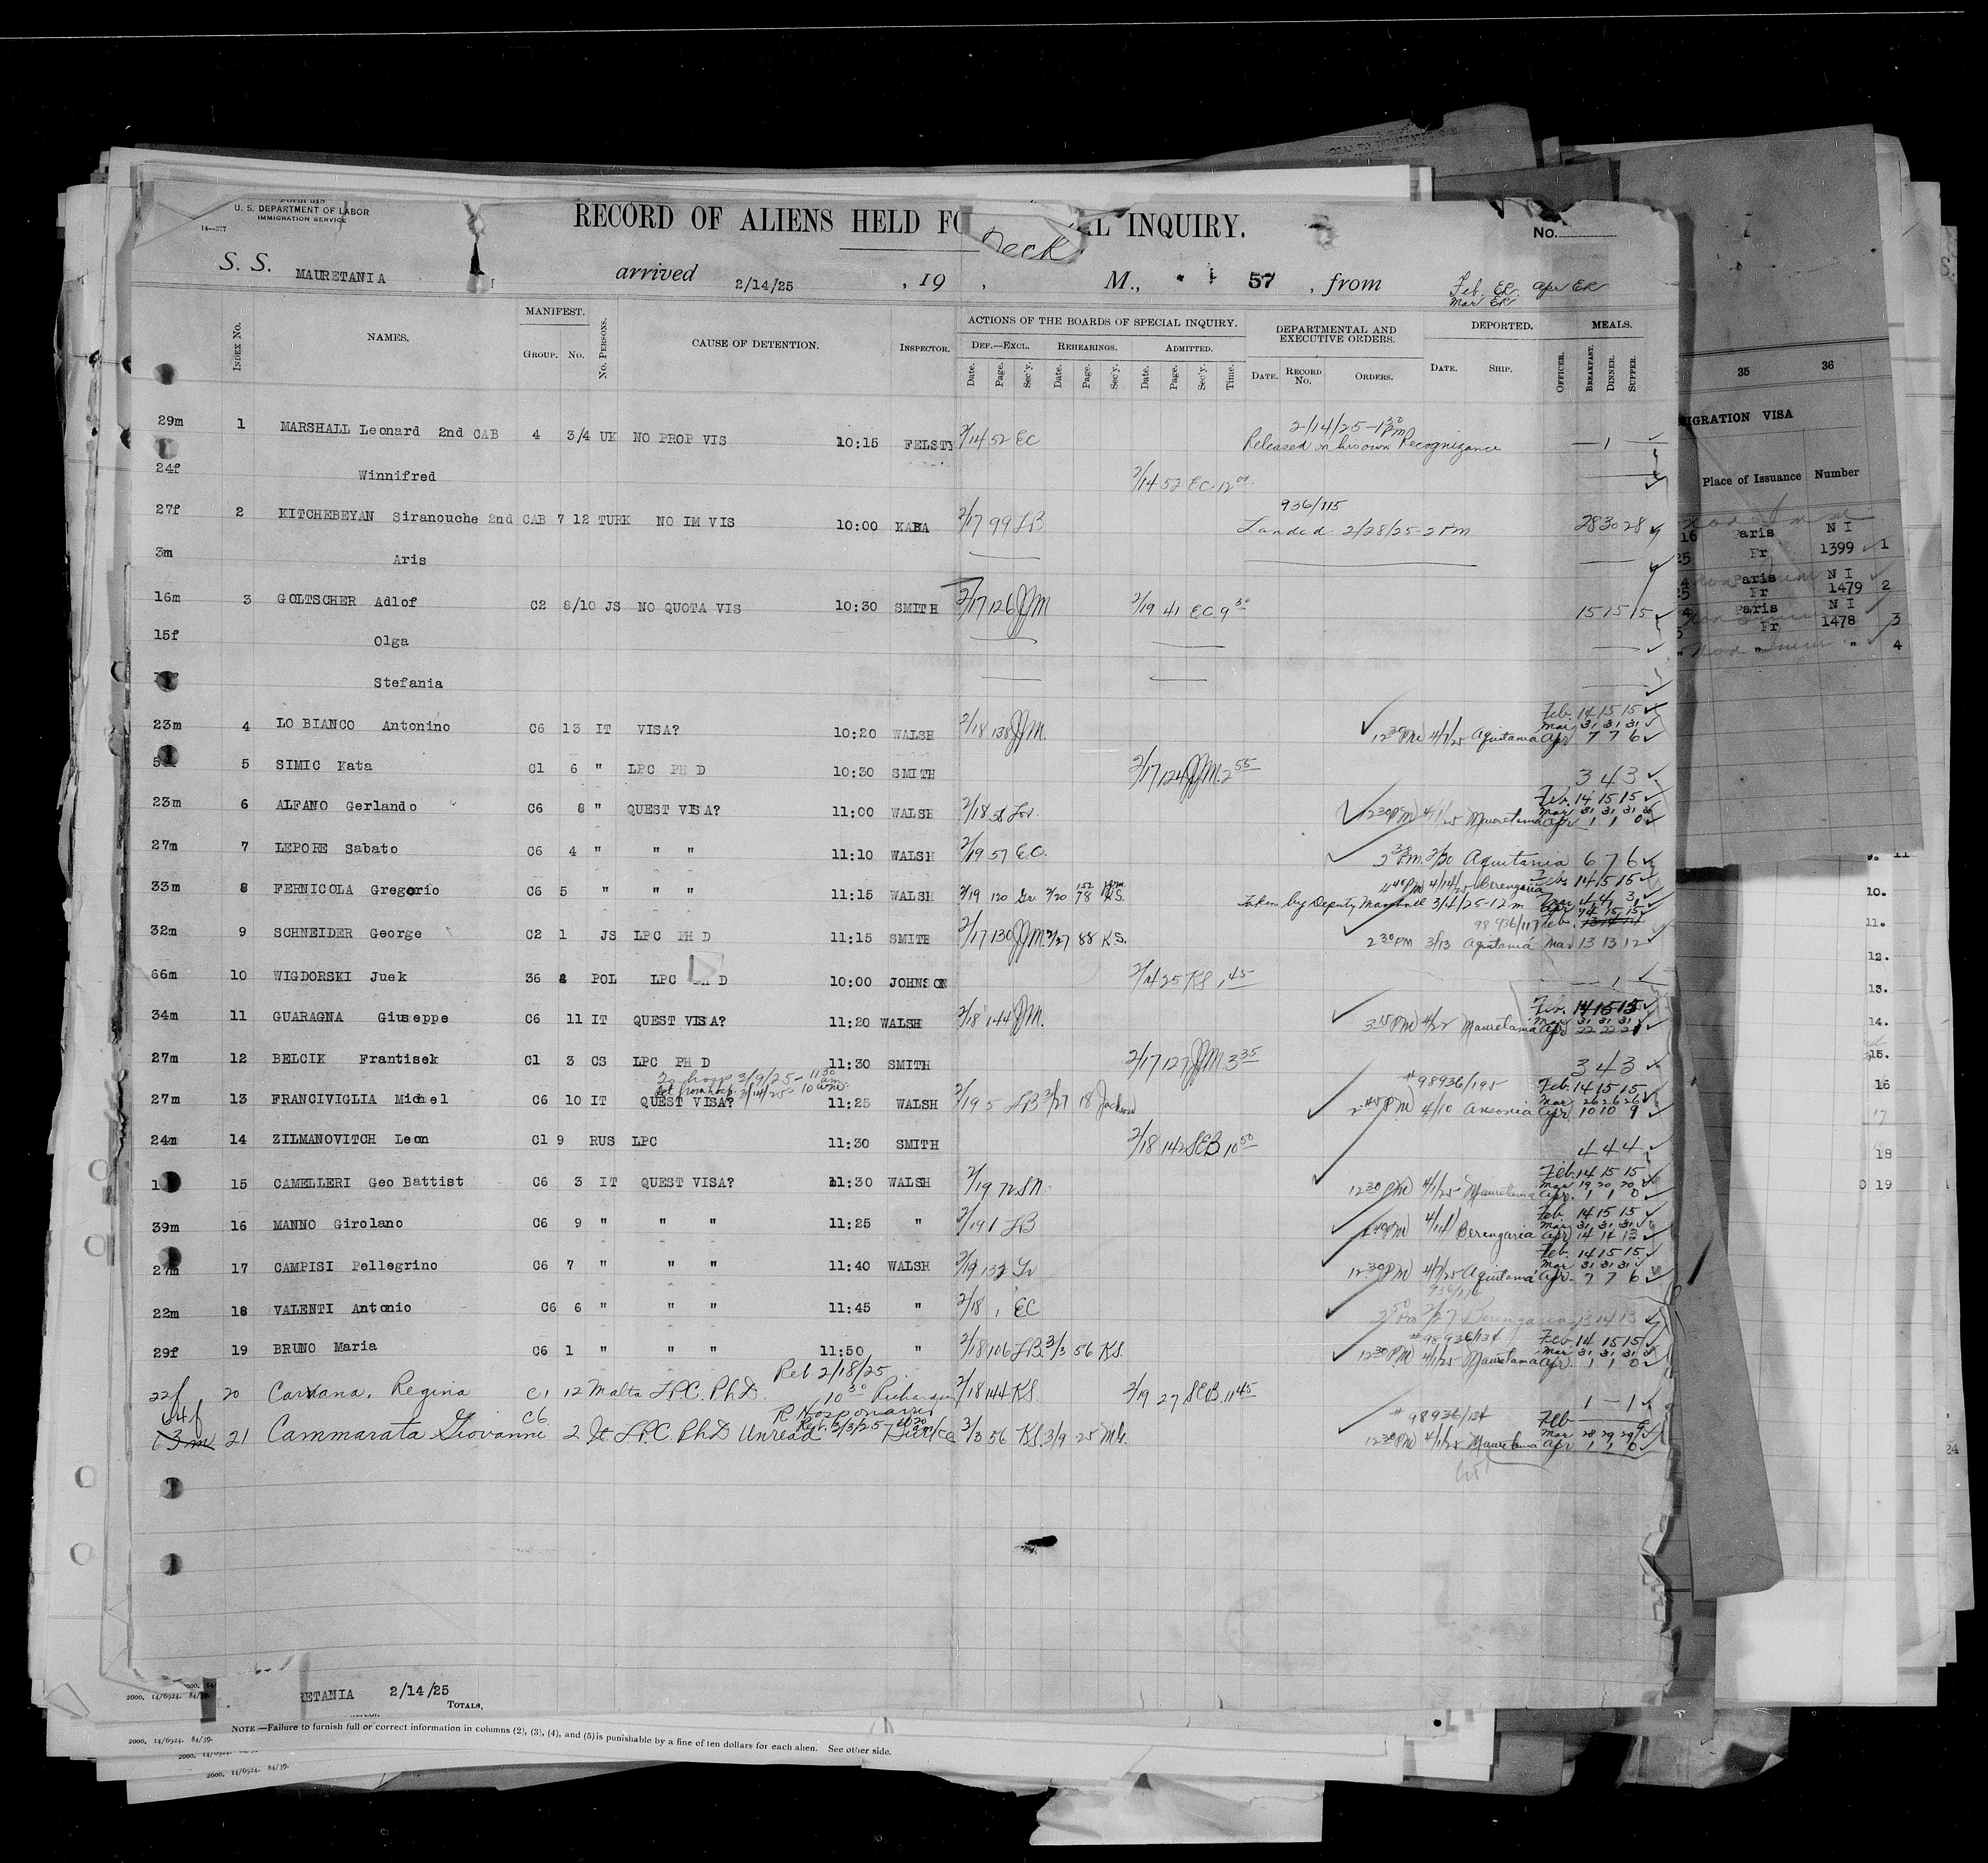 U. S. DEPARTMENT OF LABOR
IMMIGRATION SERVICE
14—377
RECORD OF ALIENS HELD FO AL INQUIRY.
Deck
No.
S. S. MAURETANIA arrived 2/14/25 , 19 , M., 57 , from
Feb. ER. Apr ER
Mar ER
INDEX No. NAMES. MANIFEST. GROUP. No. No. PERSONS. CAUSE OF DETENTION. INSPECTOR. ACTIONS OF THE BOARDS OF SPECIAL INQUIRY. DEPARTMENTAL AND EXECUTIVE ORDERS. DEPORTED. MEALS.
DEF.—EXCL. REHEARINGS. ADMITTED.
Date. Page. Sec'y. Date. Page. Sec'y. Date. Page. Sec'y. Time. DATE. RECORD No. ORDERS. DATE. SHIP. OFFICER. BREAKFAST. DINNER. SUPPER.
29m 1 MARSHALL Leonard 2nd CAB 4 3/4 UK NO PROP VIS 10:15 FELSTY 2/14 52 EC 2/14/25-1 30 PM
Released in his own Recognizance — 1 —
24f Winnifred 2/14 52 EC. 12 00
27f 2 KITCHEBEYAN Siranouche 2nd CAB 7 12 TURK NO IM VIS 10:00 KABA 2/17 99 LB 936/115
Landed 2/28/25-2 PM 28 30 28
3m Aris
16m 3 GOLTSCHER Adlof C2 8/10 JS NO QUOTA VIS 10:30 SMITH 2/17 126 JJM 2/19 41 EC. 9 30 15 15 15
15f Olga
Stefania
23m 4 LO BIANCO Antonino C6 13 IT VISA? 10:20 WALSH 2/18 138 JJM. 12 30 PM 4/7/25 Aquitania Feb. 14 15 15
Mar 31 31 31
Apr 7 7 6
5 SIMIC Kata C1 6 " LPC PH D 10:30 SMITH 2/17 124 JJM. 2 55 3 4 3
23m 6 ALFANO Gerlando C6 8 " QUEST VISA? 11:00 WALSH 2/18 12 30 PM 4/1/25 Mauretania Feb. 14 15 15
Mar 31 31 31
Apr 1 1 0
27m 7 LEPORE Sabato C6 4 " " " 11:10 WALSH 2/19 57 E.C. 2 30 PM. 2/20 Aquitania 6 7 6
33m 8 FERNICOLA Gregorio C6 5 " " " 11:15 WALSH 2/19 120 Gr 2/20 78 KS. 4 40 PM 4/14/25 Berengaria Feb 14 15 15
Taken by Deputy Marshall 3/4/25-12 m Mar 4 4 3
Apr 14 15 15
32m 9 SCHNEIDER George C2 1 JS LPC PH D 11:15 SMITH 2/17 130 JJM 2/27 88 K.S. 98936/117 Feb. 13 14 14
2 30 PM 3/13 Aquitania Mar 13 13 12
66m 10 WIGDORSKI Juek 36 POL LPC D 10:00 JOHNSON 2/14 25 KS 1 45 — 1 —
34m 11 GUARAGNA Giuseppe C6 11 IT QUEST VISA? 11:20 WALSH 2/18 144 JJM. 3 15 PM 4/22 Mauretania Feb. 14 15 15
Mar 31 31 31
Apr 22 22 21
27m 12 BELCIK Frantisek C1 3 CS LPC PH D 11:30 SMITH 2/17 127 JJM. 3 35 3 4 3
To hosp 3/9/25 - 11 30 am
Ret from hosp. 3/14/25 - 10 am.
#98936/195
27m 13 FRANCIVIGLIA Michel C6 10 IT QUEST VISA? 11:25 WALSH 2/19 5 LB 2/27 18 Jackson 2 45 PM 4/10 Ansonia Feb. 14 15 15
Mar 26 26 26
Apr 10 10 9
24m 14 ZILMANOVITCH Leon C1 9 RUS LPC 11:30 SMITH 2/18 142 SEB 10 50 4 4 4
15 CAMELLERI Geo Battist C6 3 IT QUEST VISA? 11:30 WALSH 2/19 72 SN. 12 30 PM 4/1/25 Mauretania Feb. 14 15 15
Mar 19 20 20
Apr. 1 1 0
39m 16 MANNO Girolano C6 9 " " " 11:25 " 2/19 1 LB 4 40 PM 4/14 Berengaria Feb. 14 15 15
Mar 31 31 31
Apr 14 14 13
27m 17 CAMPISI Pellegrino C6 7 " " " 11:40 WALSH 2/19 132 Gr 12 30 PM 4/7/25 Aquitania Feb. 14 15 15
Mar 31 31 31
Apr. 7 7 6
22m 18 VALENTI Antonio C6 6 " " " 11:45 " 2/18 1 EC 2 50 Pm 2/27 Berengaria 13 14 13
29f 19 BRUNO Maria C6 1 " " " 11:50 " 2/18 106 LB. 3/3 56 KS. #98936/134
12 30 PM 4/1/25 Mauretania Feb. 14 15 15
Mar 31 31 31
Apr. 1 1 0
Reb 2/18/25
22f 20 Caruana, Regina C1 12 Malta L.P.C. Ph.D. 10 30 Richardson 2/18 144 KS. 2/19 27 SEB. 11 45 1 — 1
R Hosp
64f 13m 21 Cammarata Giovanni C6 2 It L.P.C. PhD Unread Reb. 3/3/25 3/3 56 KS. 3/9 25 MG. #98936/134
12 30 PM 4/1/25 Mauretania Feb
Mar 28 29 29
Apr 1 1 0
RETANIA 2/14/25
TOTALS,
NOTE.—Failure to furnish full or correct information in columns (2), (3), (4), and (5) is punishable by a fine of ten dollars for each alien. See other side.
2000. 14/6924. 84/39-
2000. 14/6924. 84/39-
2000. 14/6924. 84/39-
35 36
IGRATION VISA
Place of Issuance Number
16 aris N I
25 Fr 1399 1
4 Paris N I
25 Fr 1479 2
4 Paris N I
5 Fr 1478 3
" " 4
11
10.
11.
12.
13.
14.
15.
16
17
18
19
24